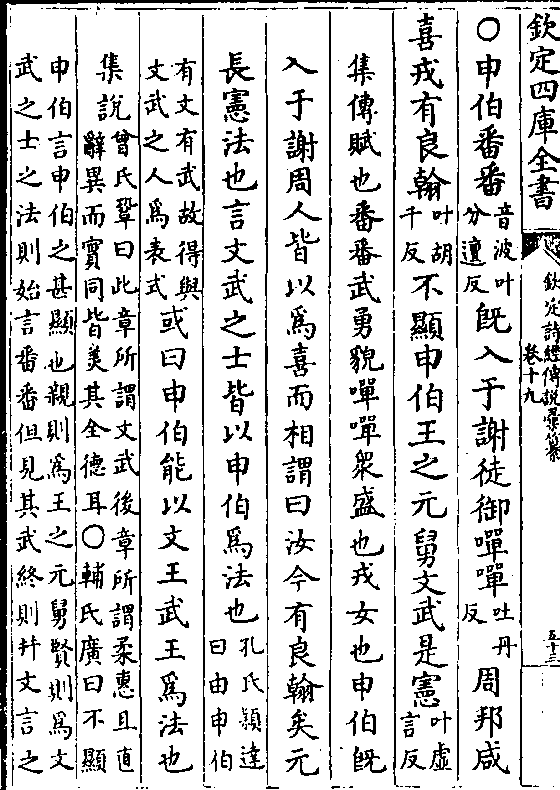 欽定四庫全書
欽定詩經傳說彙纂
卷十九
五十三
○申伯番番音波叶分邅反旣入于謝徒御嘽嘽吐丹反周邦咸
喜戎有良翰叶胡千反不顯申伯王之元舅文武是憲叶虛言反
集傳賦也番番武勇貌嘽嘽衆盛也戎女也申伯旣
入于謝周人皆以爲喜而相謂曰汝今有良翰矣元
長憲法也言文武之士皆以申伯爲法也孔氏穎達曰由申伯
有文有武故得與文武之人爲表式或曰申伯能以文王武王爲法也
集說曾氏鞏曰此章所謂文武後章所謂柔惠且直
辭異而實同皆美其全德耳○輔氏廣曰不顯
申伯言申伯之甚顯也親則爲王之元舅賢則爲文
武之士之法則始言番番但見其武終則并文言之